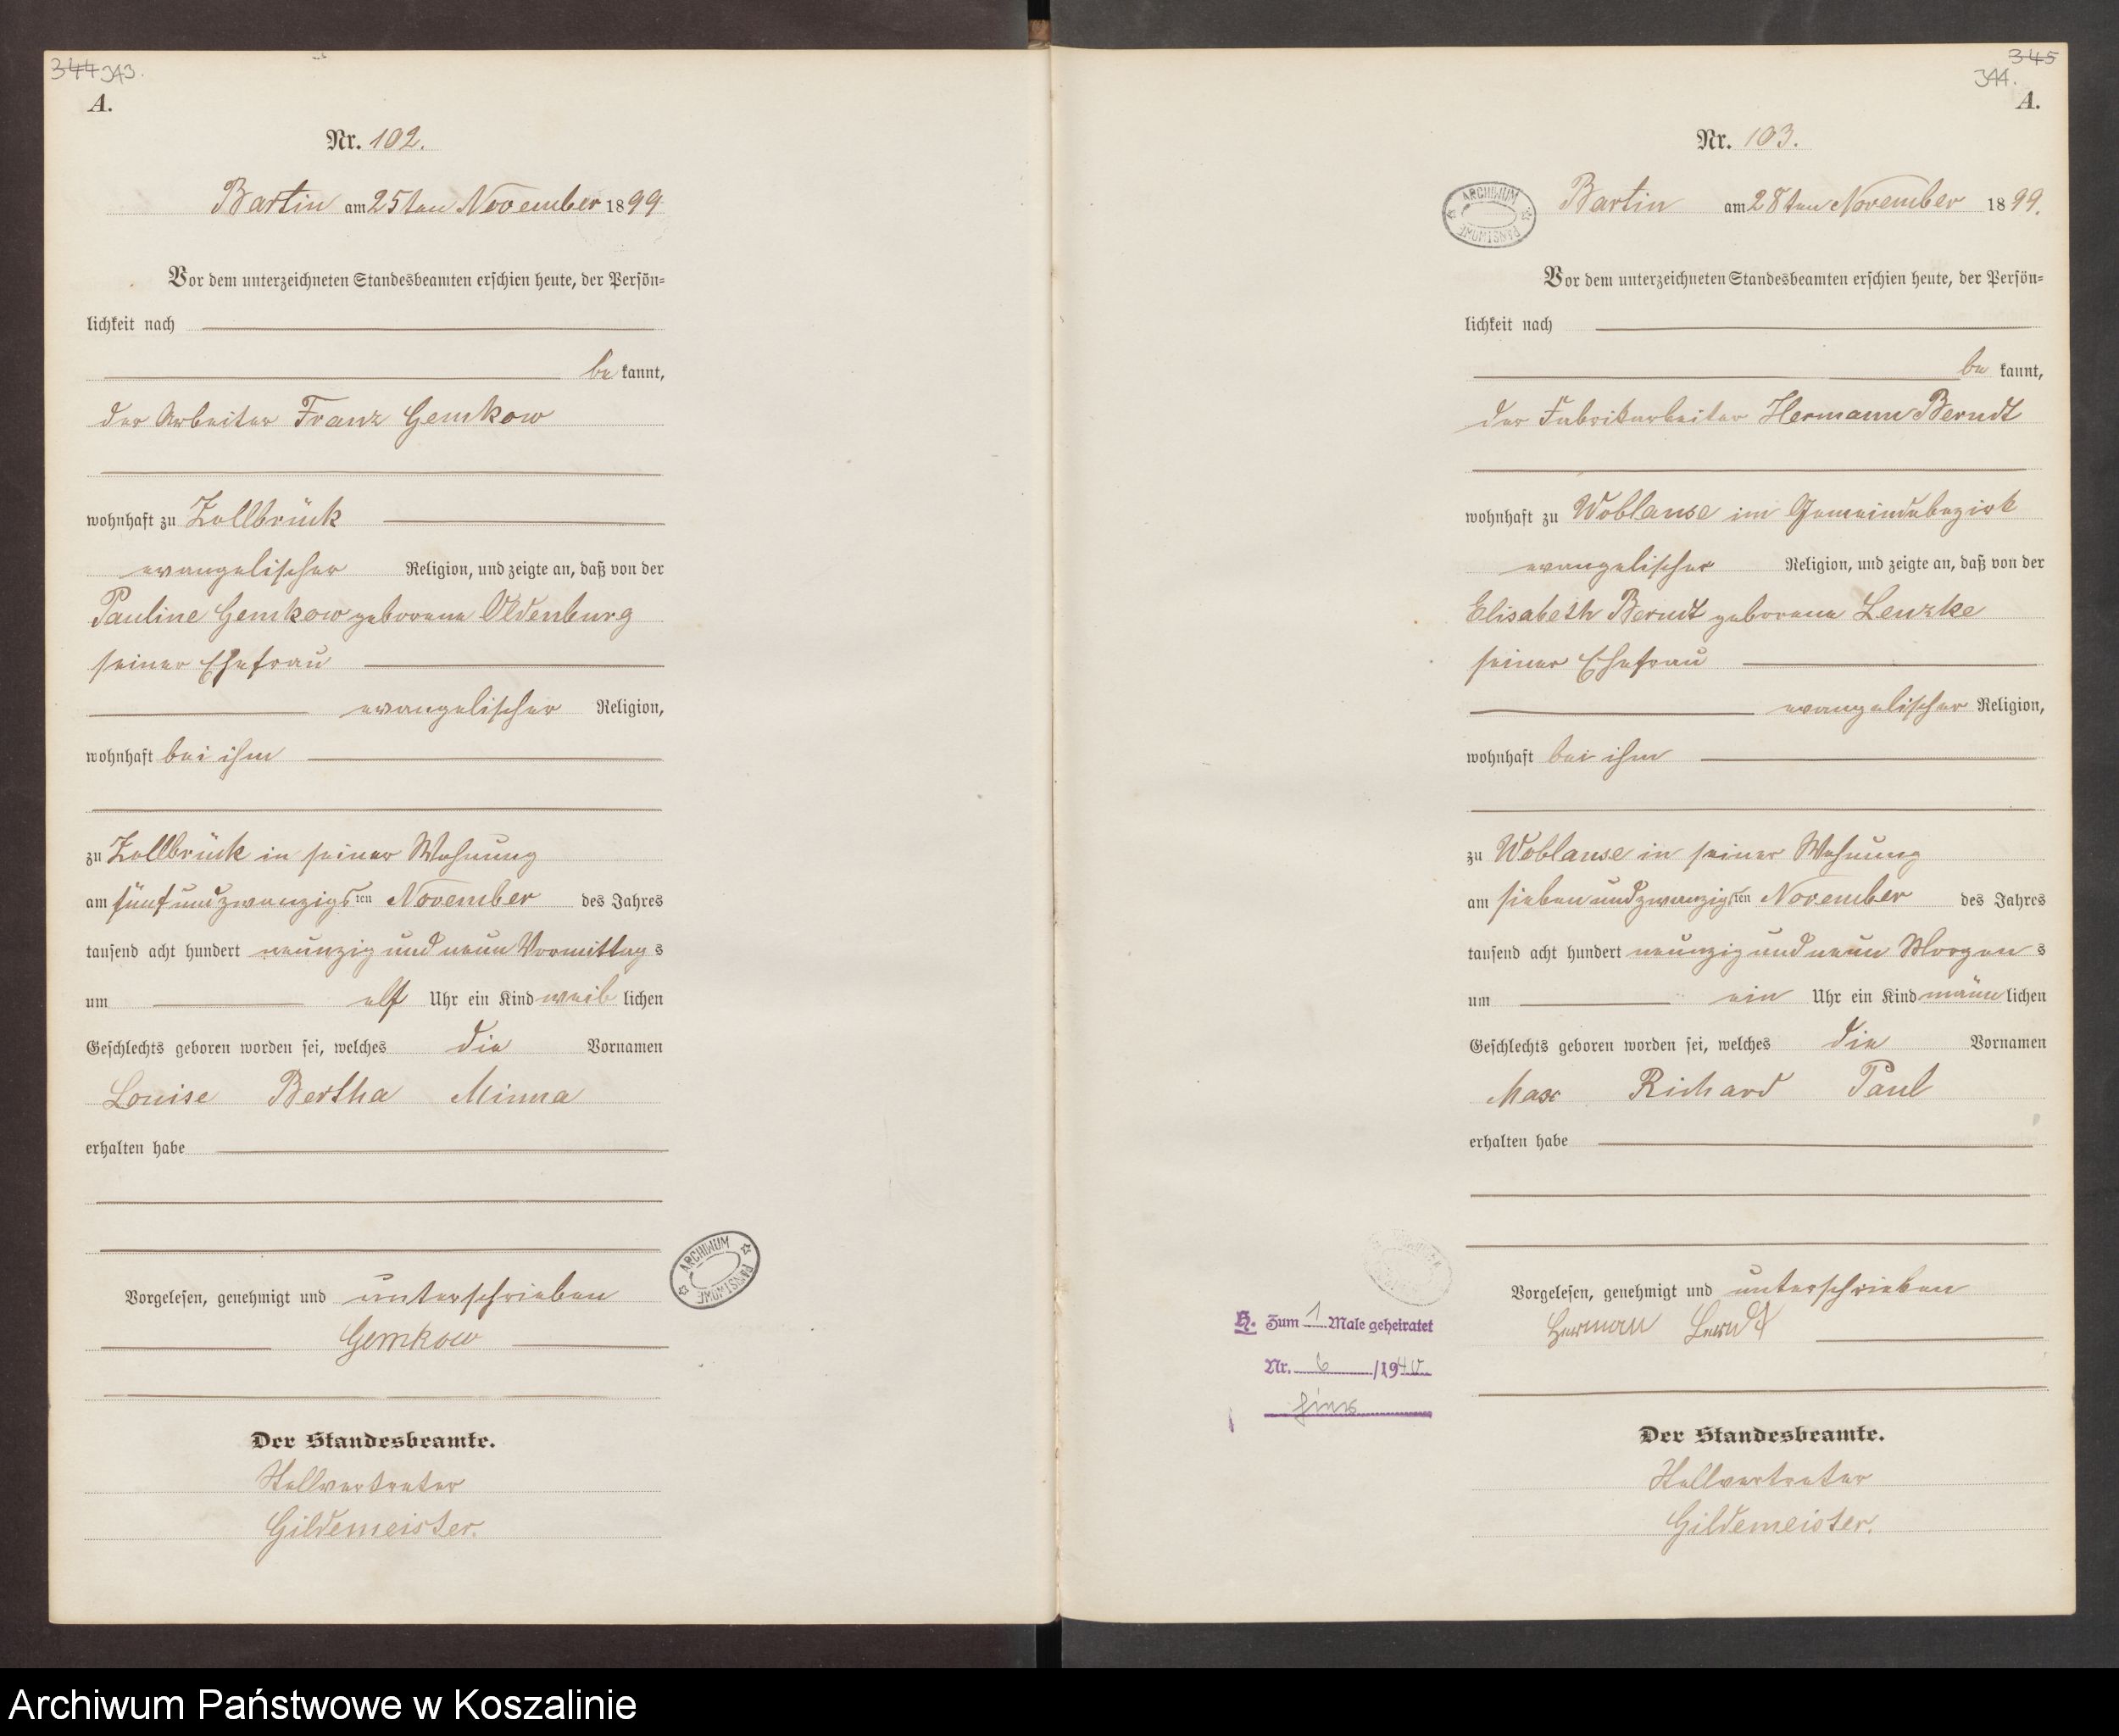 344 343.
A.
Nr. 102.
Bartin am 25ten November 1899
Vor dem unterzeichneten Standesbeamten erschien heute, der Persön-
lichkeit nach
bekannt,
der Arbeiter Franz Gemkow
wohnhaft zu Zollbrück
evangelischer Religion, und zeigte an, daß von der
Pauline Gemkow geborene Oldenburg
seiner Ehefrau
evangelischer Religion,
wohnhaft bei ihm
zu Zollbrück in seiner Wohnung
am fünfundzwanzigsten November des Jahres
tausend acht hundert neunzig und neun Vormittags
um elf Uhr ein Kind weiblichen
Geschlechts geboren worden sei, welches die Vornamen
Louise Bertha Minna
erhalten habe
Vorgelesen, genehmigt und unterschrieben
Gemkow
Der Standesbeamte.
Stellvertreter
Gildemeister.
ARCHIWUM PAŃSTWOWE
345
344.
A.
Nr. 103.
ARCHIWUM PAŃSTWOWE
Bartin am 28ten November 1899.
Vor dem unterzeichneten Standesbeamten erschien heute, der Persön-
lichkeit nach
bekannt,
der Fabrikarbeiter Hermann Berndt
wohnhaft zu Woblanse im Gemeindebezirk
evangelischer Religion, und zeigte an, daß von der
Elisabeth Berndt geborene Lenzke
seiner Ehefrau
evangelischer Religion,
wohnhaft bei ihm
zu Woblanse in seiner Wohnung
am siebenundzwanzigsten November des Jahres
tausend acht hundert neunzig und neun Morgens
um ein Uhr ein Kind männlichen
Geschlechts geboren worden sei, welches die Vornamen
Max Richard Paul
erhalten habe
Vorgelesen, genehmigt und unterschrieben
Herman Berndt
H. Zum 1 Male geheiratet
Nr. 6 /1940
Der Standesbeamte.
Stellvertreter
Gildemeister.
Archiwum Państwowe w Koszalinie